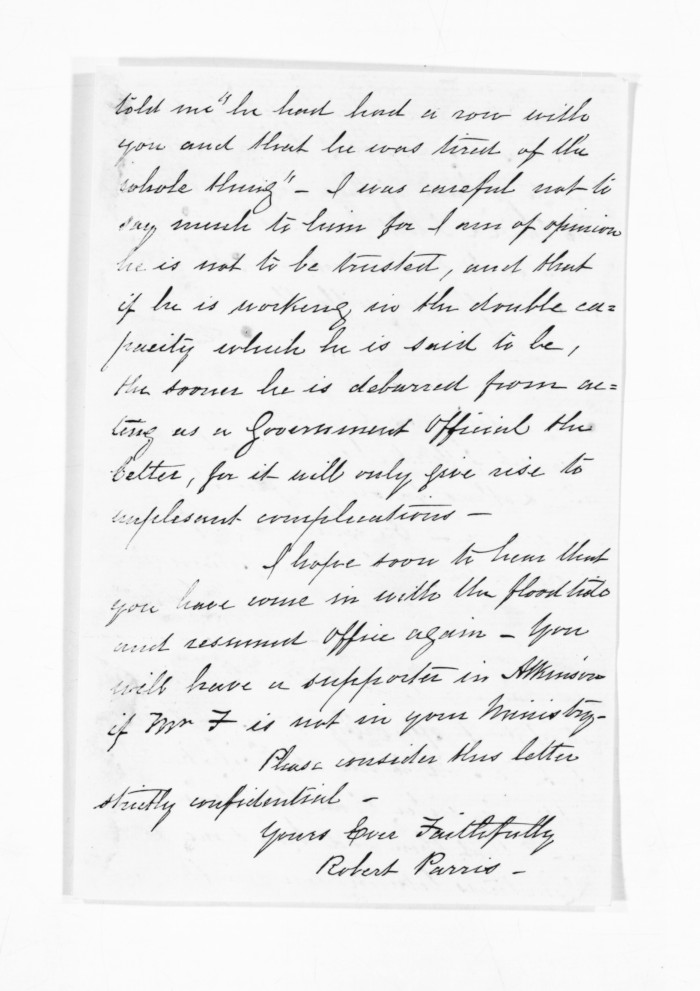 told me "he had had a row with
you and that he was tired of the
whole thing" - I was careful not to
say much to him for I am of opinion
he is not to be trusted, and that
if he is working in the double ca=
pacity which he is said to be,
the sooner he is debarred from ac=
ting as a Government Official the
better, for it will only give rise to
unplesant complications -
I hope soon to hear that
you have come in with the flood tide
and resumed office again - You
will have a supporter in Atkinson
if Mr F is not in your Ministry -
Please consider this letter
strictly confidential -
Yours Ever Faithfully
Robert Parris -